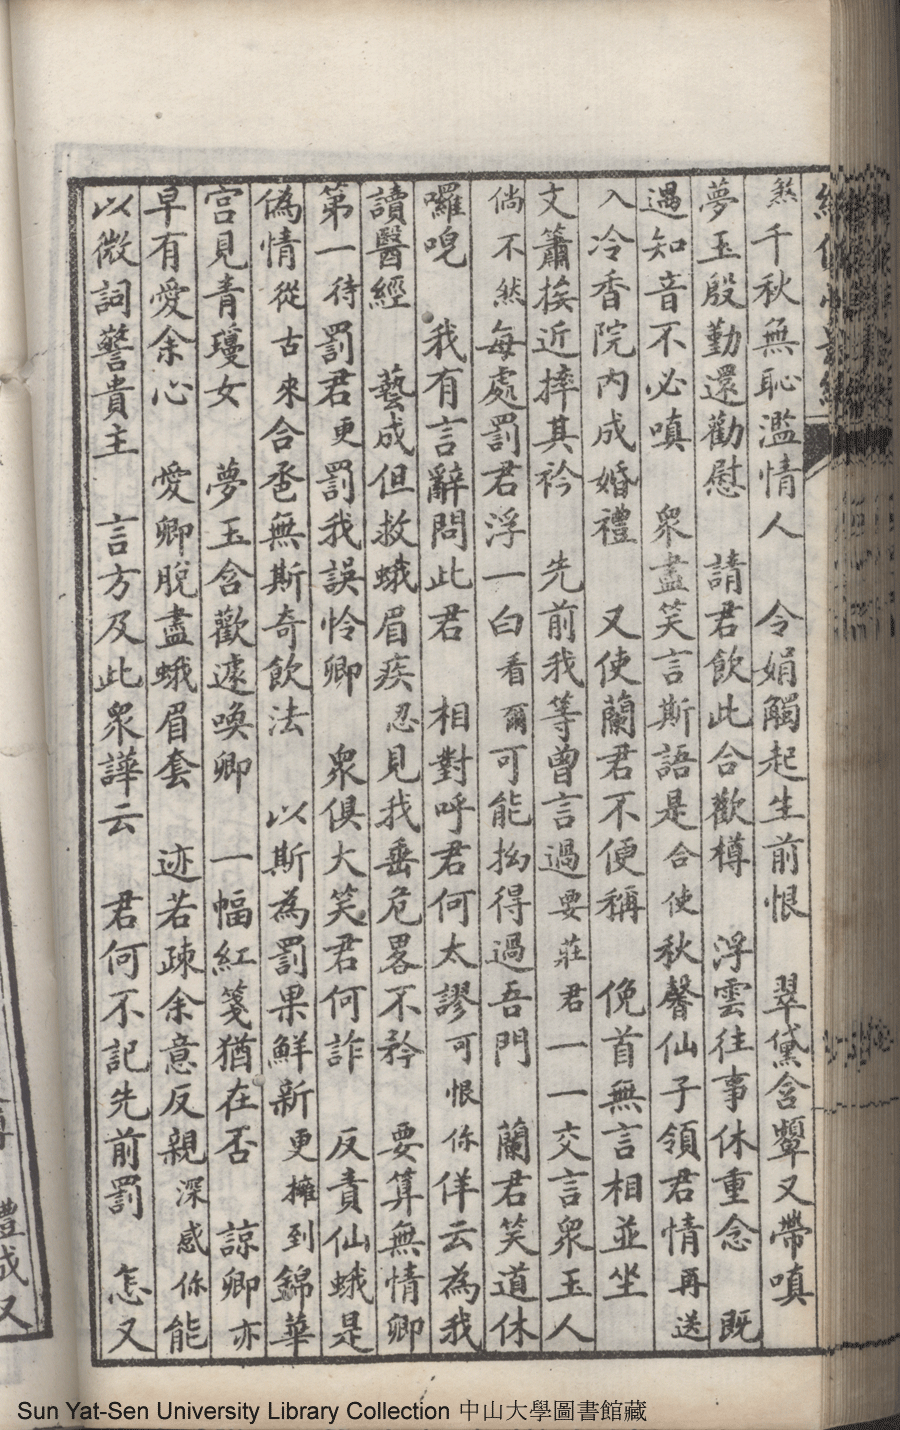 煞千秋無恥濫情人　令娟觸起生前恨　翠黛含顰又帶嗔
夢玉殷勤還勸慰　請君飲此合歡樽　浮雲往事休重念　既
遇知音不必嗔　衆盡笑言斯語是合使秋馨仙子領君情再送
入冷香院內成婚禮　又使蘭君不便稱　俛首無言相並坐
文簫挨近摔其衿　先前我等曾言過要莊君一一交言衆玉人
倘不然每處罰君浮一白看爾可能拗得過吾門　蘭君笑道休
囉唣　我有言辭問此君　相對呼君何太謬可恨你佯云為我
讀醫經　藝成但救蛾眉疾忍見我垂危畧不矜　要算無情卿
第一待罰君更罰我誤怜卿　衆俱大笑君何詐　反責仙蛾是
偽情從古來合卺無斯奇飲法　以斯為罰果鮮新更擁到錦華
宮見青瓊女　夢玉含歡遽喚卿　一幅紅箋猶在否　諒卿亦
早有愛余心　愛卿脫盡蛾眉套　迹若疎余意反親深感你能
以微詞警貴主　言方及此衆譁云　君何不記先前罰　怎又
禮成又
Sun Yat-Sen University Library Collection 中山大學圖書館藏